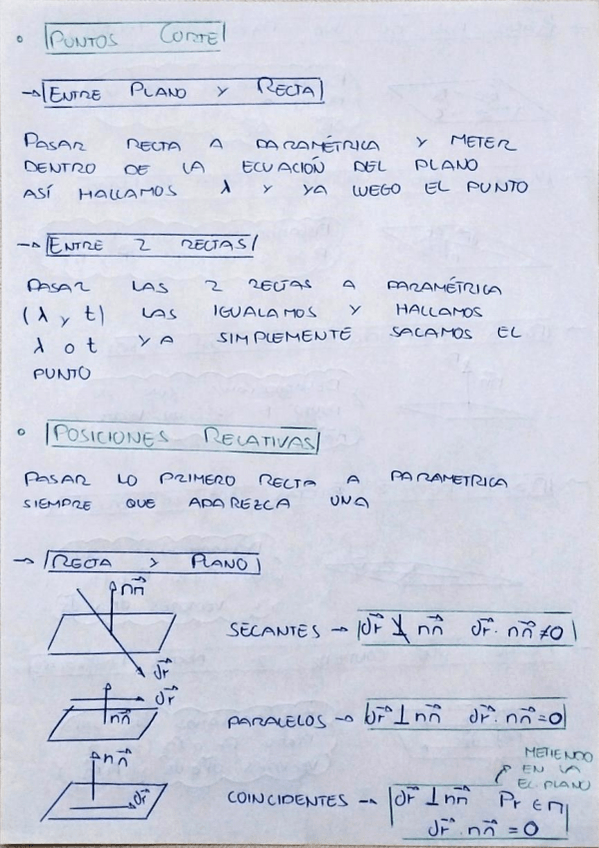 • PUNTOS CORTE
→ ENTRE PLANO Y RECTA
PASAR RECTA A PARAMÉTRICA Y METER
DENTRO DE LA ECUACIÓN DEL PLANO
ASÍ HALLAMOS λ Y YA LUEGO EL PUNTO
→ ENTRE 2 RECTAS
PASAR LAS 2 RECTAS A PARAMÉTRICA
(λ y t) LAS IGUALAMOS Y HALLAMOS
λ o t YA SIMPLEMENTE SACAMOS EL
PUNTO
• POSICIONES RELATIVAS
PASAR LO PRIMERO RECTA A PARAMETRICA
SIEMPRE QUE APAREZCA UNA
→ RECTA Y PLANO
nπ⃗
SECANTES → dr⃗ ⊥̸ nπ⃗ dr⃗ · nπ⃗ ≠ 0
dr⃗
dr⃗
nπ⃗
PARALELOS → dr⃗ ⊥ nπ⃗ dr⃗ · nπ⃗ = 0
METIENDO
EN LA
EC.PLANO
nπ⃗
dr⃗
COINCIDENTES → dr⃗ ⊥ nπ⃗ Pr ∈ π
dr⃗ · nπ⃗ = 0